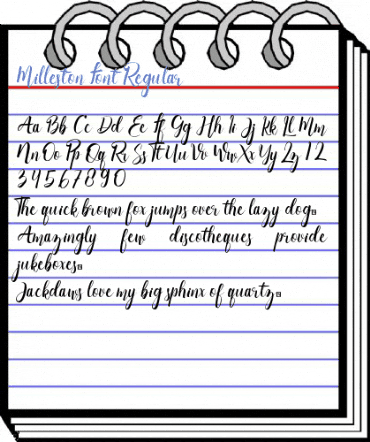 Milleston Font Regular
Aa Bb Cc Dd Ee Ff Gg Hh Ii Jj Kk Ll Mm
Nn Oo Pp Qq Rr Ss Tt Uu Vv Ww Xx Yy Zz 1 2
3 4 5 6 7 8 9 0
The quick brown fox jumps over the lazy dog▯
Amazingly few discotheques provide
jukeboxes▯
Jackdaws love my big sphinx of quartz▯